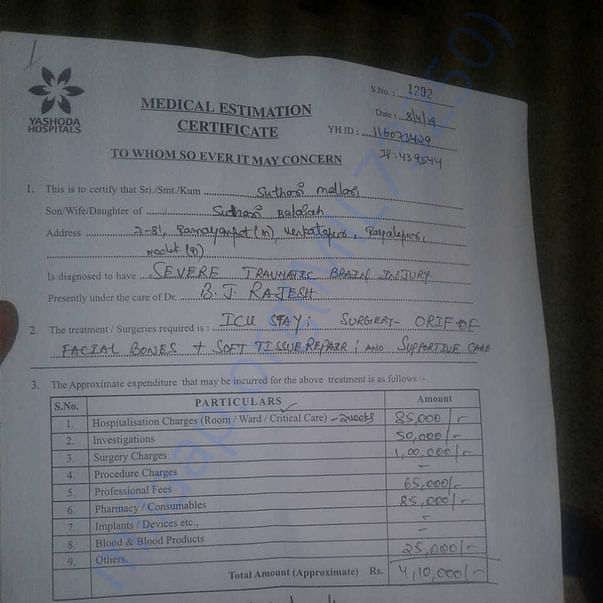 S.No.: 1292
YASHODA
HOSPITALS
MEDICAL ESTIMATION
CERTIFICATE
Date: 8/4/19
YH ID: 116073429
IP: 439544
TO WHOM SO EVER IT MAY CONCERN
1. This is to certify that Sri./Smt./Kum Suthari
Son/Wife/Daughter of Suthari Balaiah
Address 2-81, Ramayampet (m),
medak
Is diagnosed to have SEVERE TRAUMATIC BRAIN INJURY
Presently under the care of Dr. B. J. RAJESH
2. The treatment / Surgeries required is : ICU STAY; SURGERY- ORIF OF
FACIAL BONES + SOFT TISSUE REPAIR; AND SUPPORTIVE CARE
3. The Approximate expenditure that may be incurred for the above treatment is as follows :-
S.No. PARTICULARS Amount
1. Hospitalisation Charges (Room / Ward / Critical Care) - 2 weeks 85,000/-
2. Investigations 50,000/-
3. Surgery Charges 1,00,000/-
4. Procedure Charges -
5. Professional Fees 65,000/-
6. Pharmacy / Consumables 85,000/-
7. Implants / Devices etc., -
8. Blood & Blood Products -
9. Others. 25,000/-
Total Amount (Approximate) Rs. 4,10,000/-